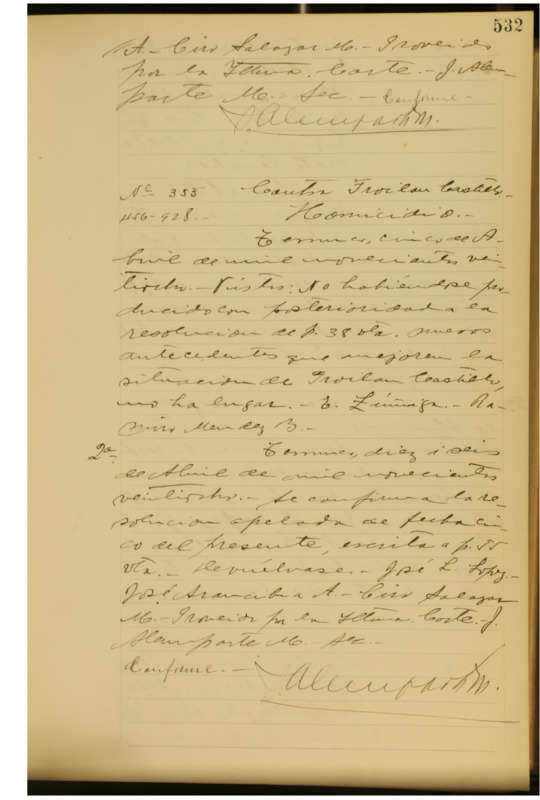 532
A.- Ciro Salazar M.- Proveido
por la Iltma. Corte.- J. Alem-
parte M.- Sec.- Conforme.-
J. Alemparte M.
Nº 353 Contra Troilan Castillo.-
456-928.- Homicidio.-
Temuco, cinco de A-
bril de mil novecientos vein-
tiocho.- Vistos: No habiéndose pro-
ducido con posterioridad a la
resolucion de p. 38 vta. nuevos
antecedentes que mejoren la
situacion de Troilan Castillo,
no ha lugar.- E. Zúñiga.- Ra-
miro Mendez B.-
2ª Temuco, diez i seis
de Abril de mil novecientos
veintiocho.- Se confirma la re-
solucion apelada de fecha cin-
co del presente, escrita a p. 55
vta.- Devuélvase.- José L. Lopez.-
José Arancibia A.- Ciro Salazar
M.- Proveido por la Iltma. Corte.- J.
Alemparte M.- Sec.-
Conforme.-
J. Alemparte M.